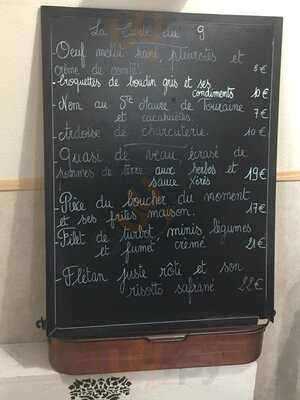 La Carte du 9
- Oeuf mollet pané, pleurotes et
crème de comté. 8€
- croquettes de boudin gris et ses
condiments 10€
- Nem au Ste Maure de Touraine
et cacahuètes. 7€
- Ardoise de charcuterie. 10€
- Quasi de veau, écrasé de
pommes de terre aux herbes et 19€
sauce Xérès
- Pièce du boucher du moment
et ses frites maison. 17€
- Filet de turbot, minis légumes
et fumet crémé 21€
- Flétan juste rôti et son
risotto safrané 22€